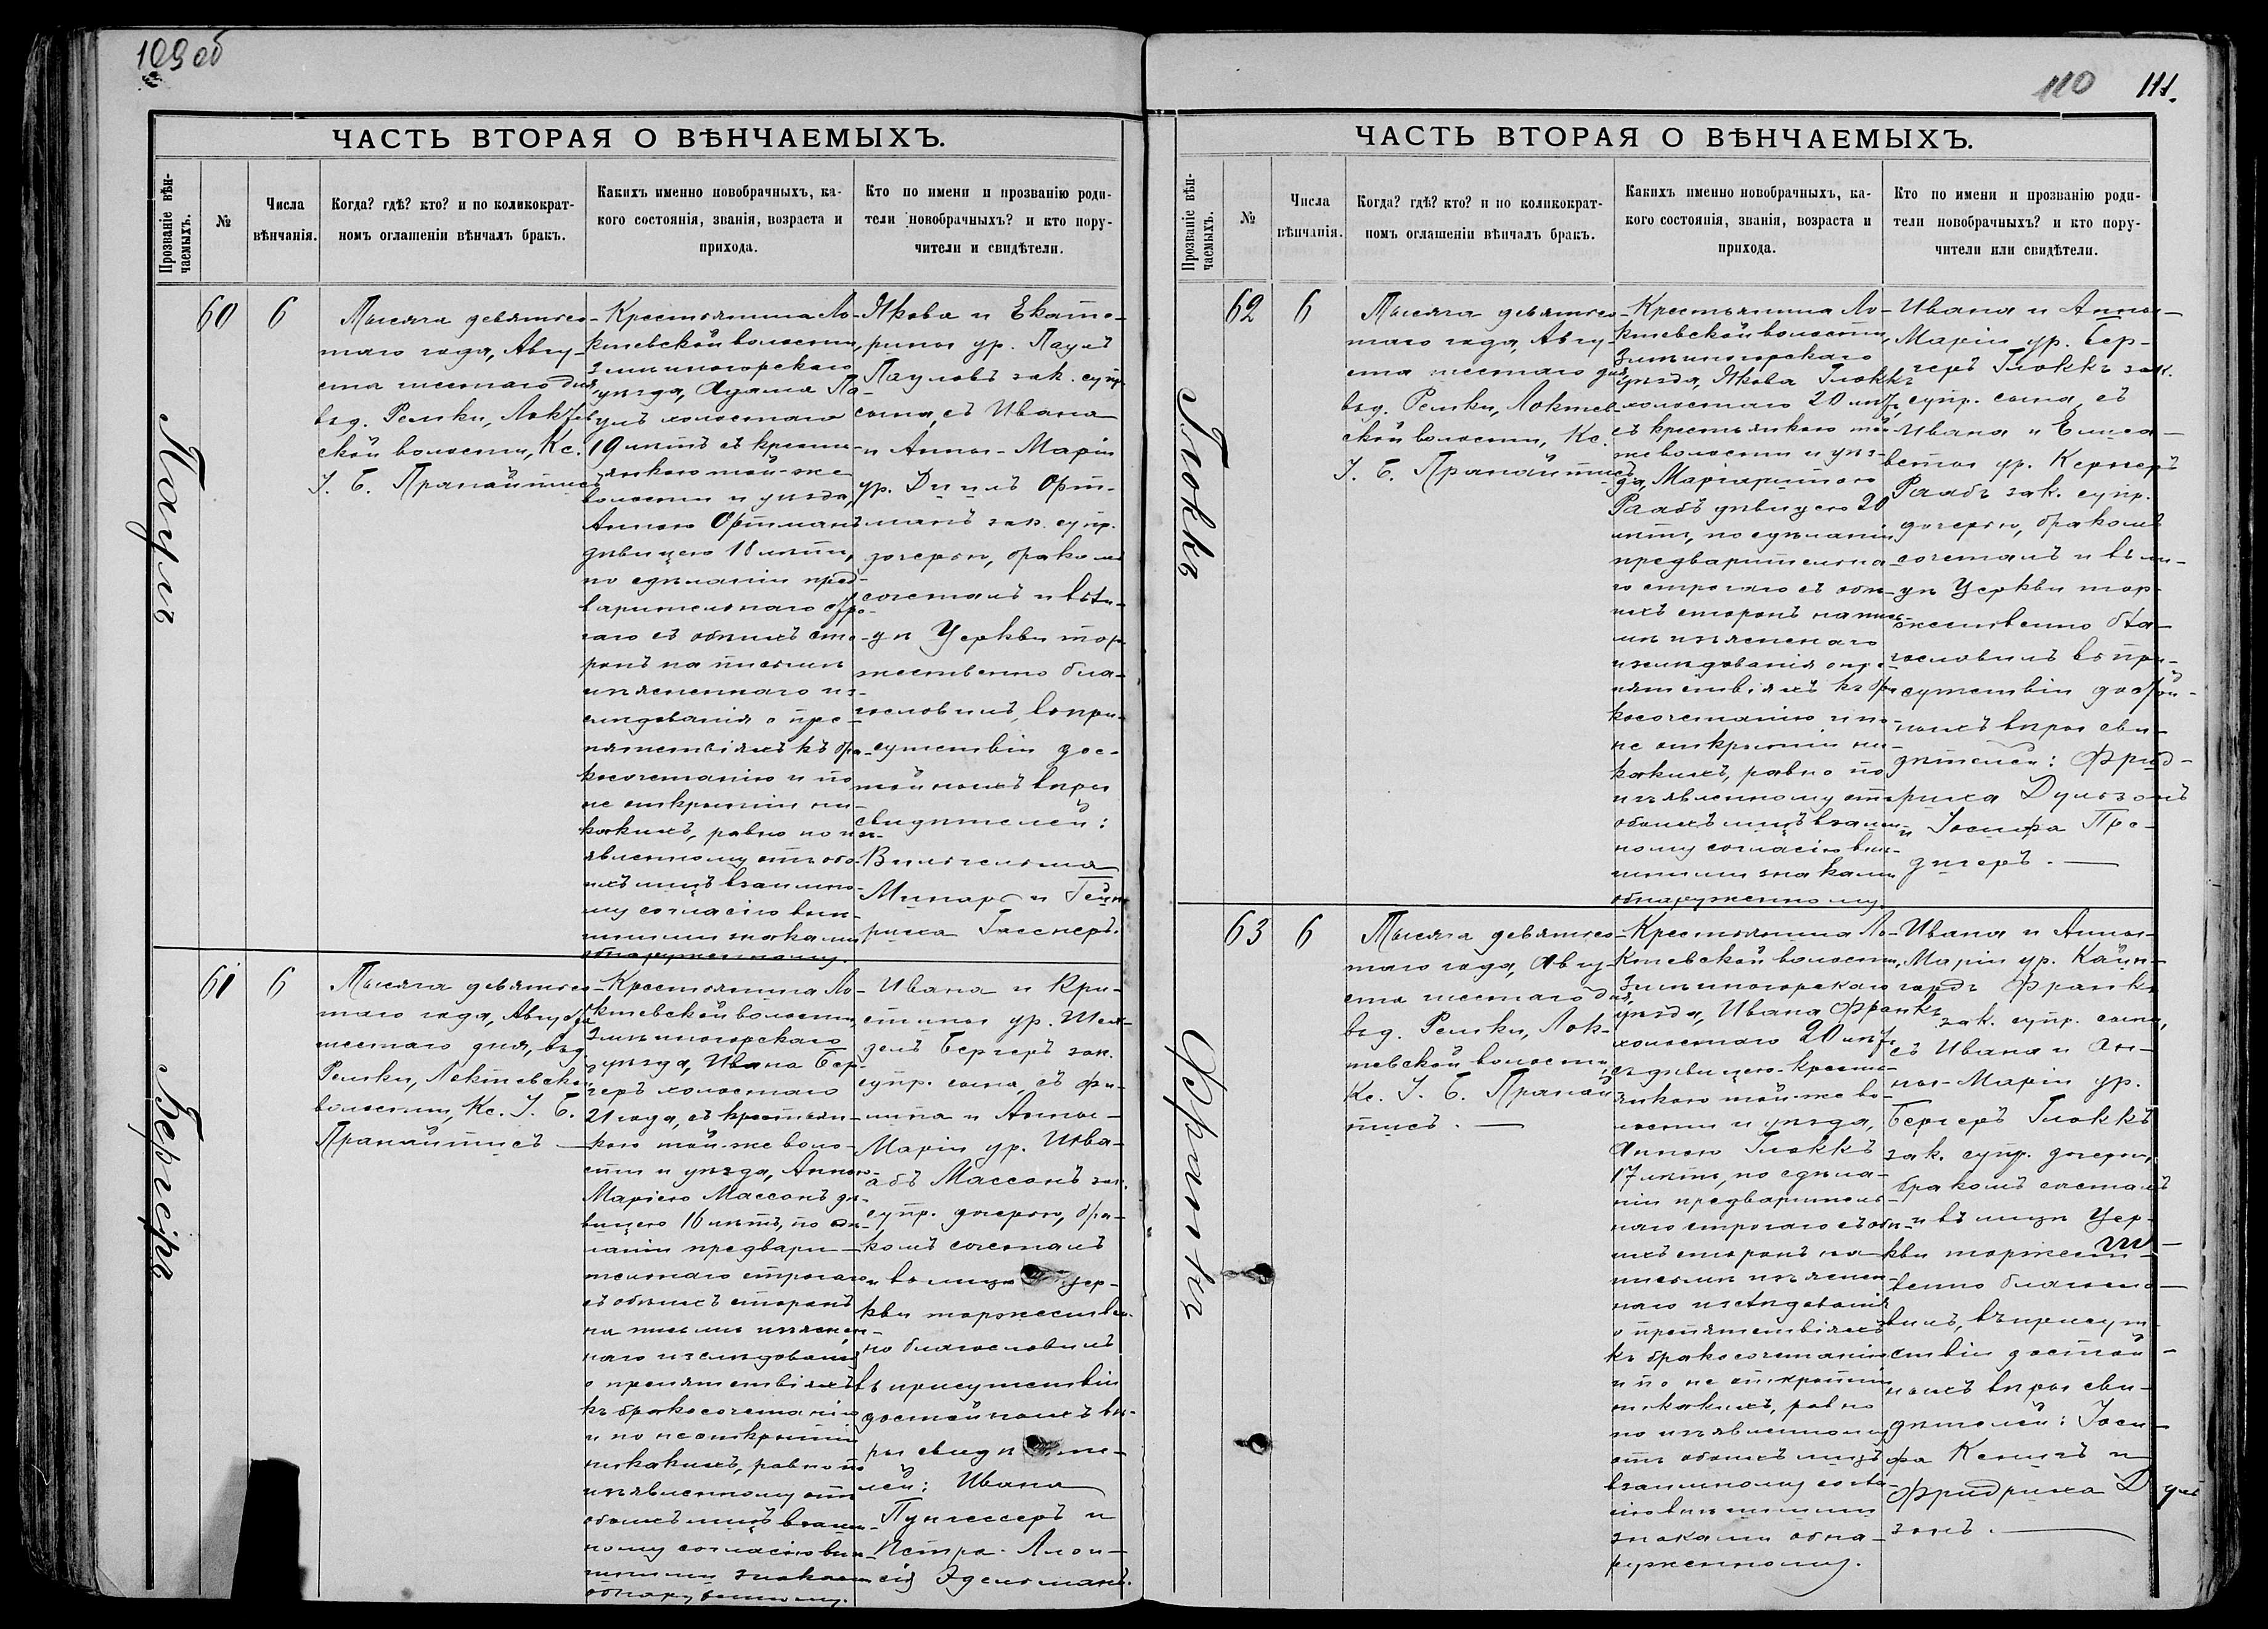 109 об
ЧАСТЬ ВТОРАЯ О ВѢНЧАЕМЫХЪ.
Прозваніе вѣн-
чаемыхъ.
№
Числа
вѣнчанія.
Когда? гдѣ? кто? и по коликократ-
номъ оглашеніи вѣнчалъ бракъ.
Какихъ именно новобрачныхъ, ка-
кого состоянія, званія, возраста и
прихода.
Кто по имени и прозванію роди-
тели новобрачныхъ? и кто пору-
чители и свидѣтели.
Пауль
60
6
Тысяча девятьсо-
таго года, Авгу-
ста шестаго дня
въ д. Ремки, Локтев
ской волости, Кс.
І. Б. Пранайтисъ
Крестьянина Ло-
ктевской волости,
Змѣиногорскаго
уѣзда, Адама Па-
улъ холостаго
19 лѣтъ съ кресть-
янкою той-же
волости и уѣзда,
Анною Ортманъ
дѣвицею 18 лѣтъ,
по сдѣланіи пред-
варительнаго стро-
гаго съ обѣихъ сто-
ронъ на письмѣ
изъясненнаго из-
слѣдованія о пре-
пятствіяхъ къ бра-
косочетанію и по
не открытіи ни-
какихъ, равно по изъ-
явленному отъ обо-
ихъ лицъ взаимно-
му согласію внѣ-
шними знаками
обнаруженному.
Якова и Екате-
рины ур. Пауль
Пауловъ зак. супр.
сына, съ Ивана
и Анны-Маріи
ур. Дицлъ Орт-
манъ зак. супр.
дочерью, бракомъ
сочеталъ и въ ли-
цѣ Церкви тор-
жественно бла-
гословилъ, въ при-
сутствіи дос-
тойныхъ вѣры
свидѣтелей:
Вильгельма
Минаръ и Гейн
риха Гаснеръ.
Бергеръ
61
6
Тысяча девятьсо-
таго года, Августа
шестаго дня, въ д.
Ремки, Локтевской
волости, Кс. І. Б.
Пранайтисъ
Крестьянина Ло-
ктевской волости,
Змѣиногорскаго
уѣзда, Ивана Бер-
геръ холостаго
21 года, съ крестьян-
кою той-же воло-
сти и уѣзда, Анною-
Маріею Массонъ дѣ-
вицею 16 лѣтъ, по сдѣ-
ланіи предвари-
тельнаго строгаго
съ обѣихъ сторонъ
на письмѣ изъяснен-
наго изслѣдованія
о препятствіяхъ
къ бракосочетанію
и по не открытіи
никакихъ, равно по
изъявленному отъ
обоихъ лицъ взаим-
ному согласію внѣ-
шними знаками
обнаруженному.
Ивана и Кри-
стины ур. Шей-
дель Бергеръ зак.
супр. сына, съ Фи-
липа и Анны-
Маріи ур. Шва-
абъ Массонъ зак.
супр. дочерью, бра-
комъ сочеталъ
и въ лицѣ Цер-
кви торжествен-
но благословилъ
въ присутствіи
достойныхъ вѣ-
ры свидѣте-
лей: Ивана
Пунгессеръ и
Петра-Алои-
сія Эдельманъ.
110 111.
ЧАСТЬ ВТОРАЯ О ВѢНЧАЕМЫХЪ.
Прозваніе вѣн-
чаемыхъ.
№
Числа
вѣнчанія.
Когда? гдѣ? кто? и по коликократ-
номъ оглашеніи вѣнчалъ бракъ.
Какихъ именно новобрачныхъ, ка-
кого состоянія, званія, возраста и
прихода.
Кто по имени и прозванію роди-
тели новобрачныхъ? и кто пору-
чители или свидѣтели.
Глоккъ
62
6
Тысяча девятьсо-
таго года, Авгу-
ста шестаго дня
въ д. Ремки, Локтев-
ской волости, Кс.
І. Б. Пранайтисъ
Крестьянина Ло-
ктевской волости,
Змѣиногорскаго
уѣзда, Якова Глоккъ
холостаго 20 лѣтъ,
съ крестьянкою той
же волости и уѣз-
да, Маргаритою
Раабъ дѣвицею 20
лѣтъ, по сдѣланіи
предварительна-
го строгаго съ обѣ-
ихъ сторонъ на пись-
мѣ изъясненаго
изслѣдованія о пре-
пятствіяхъ къ бра
косочетанію и по
не открытіи ни-
какихъ, равно по
изъявленному отъ
обоихъ лицъ взаим-
ному согласію внѣ-
шними знаками
обнаруженному.
Ивана и Анны-
Маріи ур. Бер-
геръ Глоккъ зак.
супр. сына, съ
Ивана и Елиса-
веты ур. Кернеръ
Раабъ зак. супр.
дочерью, бракомъ
сочеталъ и въ ли-
цѣ Церкви тор-
жественно бла-
гословилъ въ при-
сутствіи достой-
ныхъ вѣры сви-
дѣтелей: Фрид-
риха Дульзонъ
и Іосифа Пре-
дигеръ.
Франкъ
63
6
Тысяча девятьсо-
таго года, Авгу-
ста шестаго дня,
въ д. Ремки, Лок-
тевской волости,
Кс. І. Б. Пранай
тисъ.
Крестьянина Ло-
ктевской волости,
Змѣиногорскаго
уѣзда, Ивана Франкъ
холостаго 20 лѣтъ,
съ дѣвицею-кресть-
янкою той-же во-
лости и уѣзда,
Анною Глоккъ
17 лѣтъ, по сдѣла-
ніи предваритель-
наго строгаго съ обѣ-
ихъ сторонъ на
письмѣ изъяснен-
наго изслѣдованія
о препятствіяхъ
къ бракосочетанію
и по не открытіи
никакихъ, равно
по изъявленному
отъ обоихъ лицъ
взаимному согла-
сію внѣшними
знаками обна-
руженному.
Ивана и Анны-
Маріи ур. Кайн-
гардъ Франкъ
зак. супр. сына,
съ Ивана и Ан-
ны-Маріи ур.
Бергеръ Глоккъ
зак. супр. дочерью,
бракомъ сочеталъ
и въ лицѣ Цер-
кви торжест-
венно благосло-
вилъ, въ присут
ствіи достой-
ныхъ вѣры сви-
дѣтелей: Іоси-
фа Кенигъ и
Фридриха Дуль
зонъ.